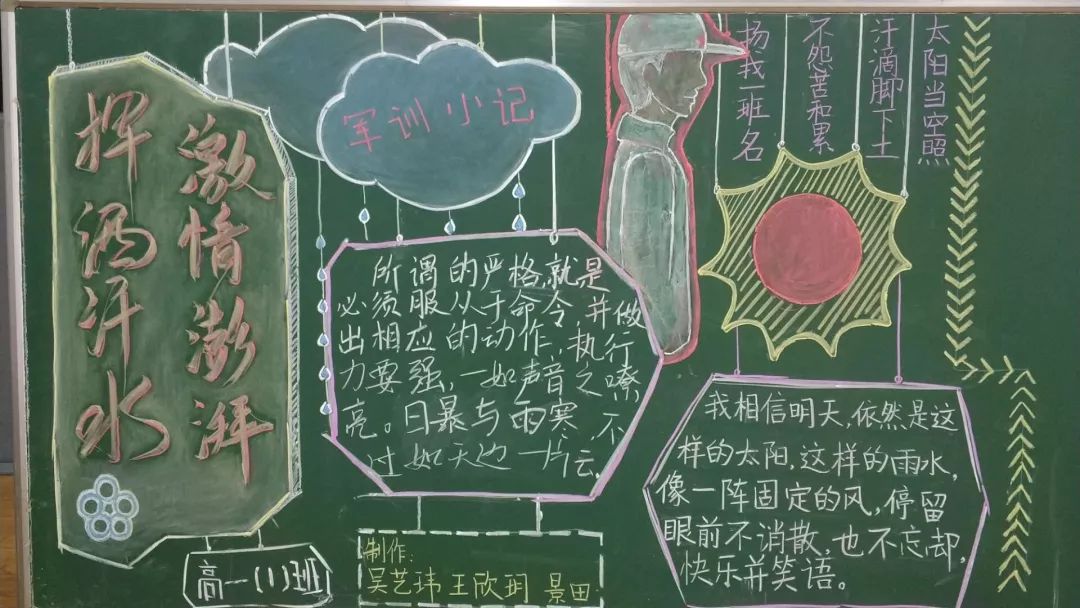 激情澎湃
挥洒汗水
军训小记
太阳当空照
汗滴脚下土
不怨苦和累
扬我一班名
所谓的严格,就是
必须服从于命令,并做
出相应的动作,执行
力要强,一如声音之嘹
亮。日暴与雨寒,不
过如天边一片云。
我相信明天,依然是这
样的太阳,这样的雨水,
像一阵固定的风,停留
眼前不消散,也不忘却,
快乐并笑语。
高一(1)班
制作:
吴艺玮 王欣玥 景田